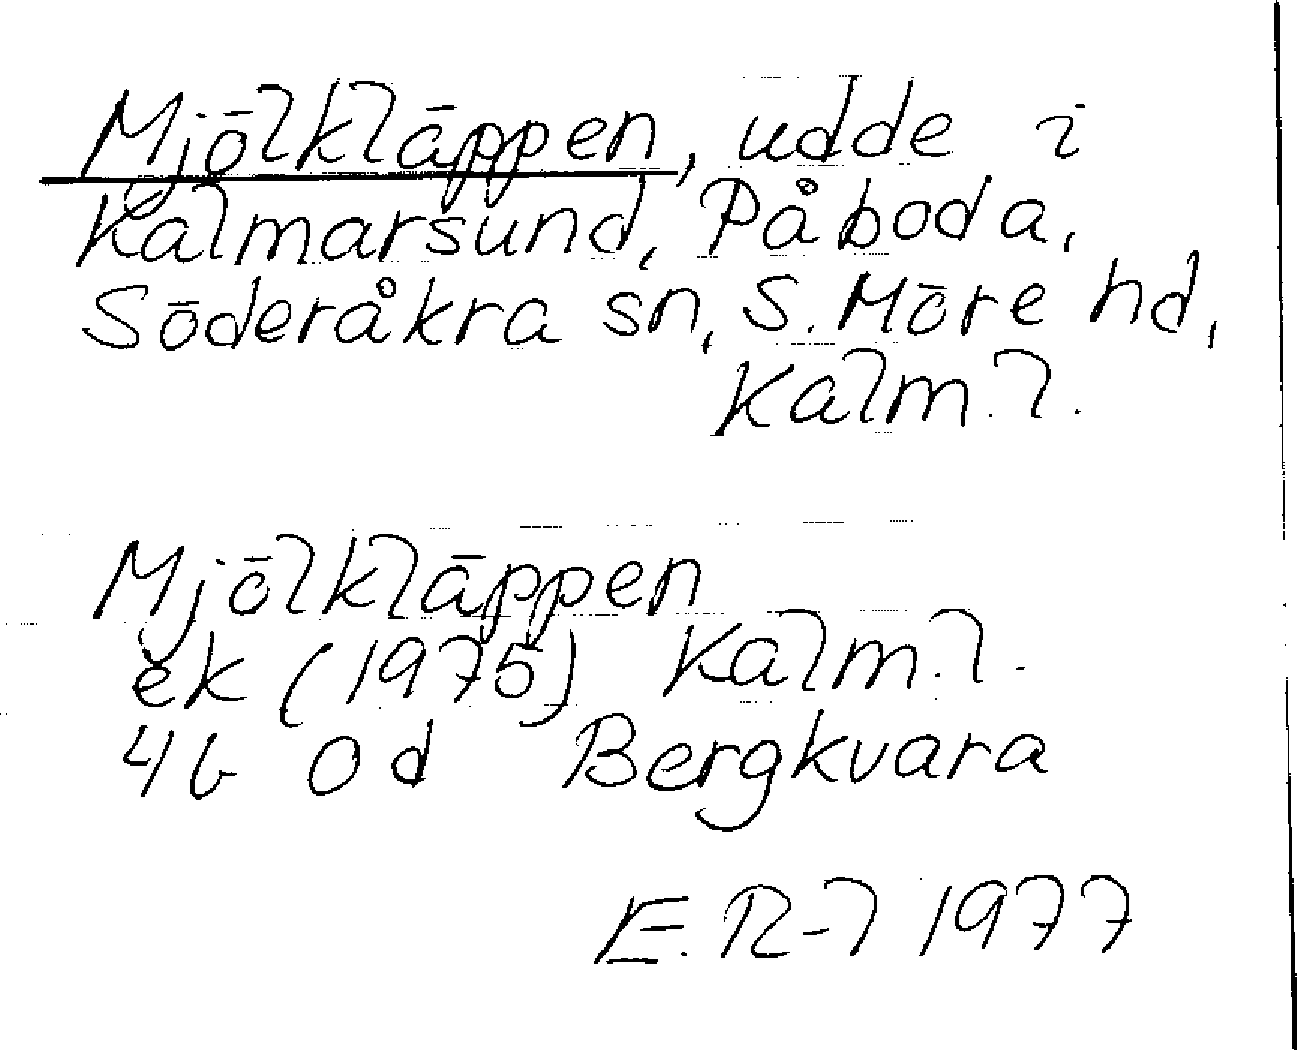 Mjölkläppen, udde i
Kalmarsund, Påboda,
Söderåkra sn, S. Möre hd,
Kalm. l.
Mjölkläppen
ek (1975) Kalm. l.
4G 0d Bergkvara
E. R-l 1977